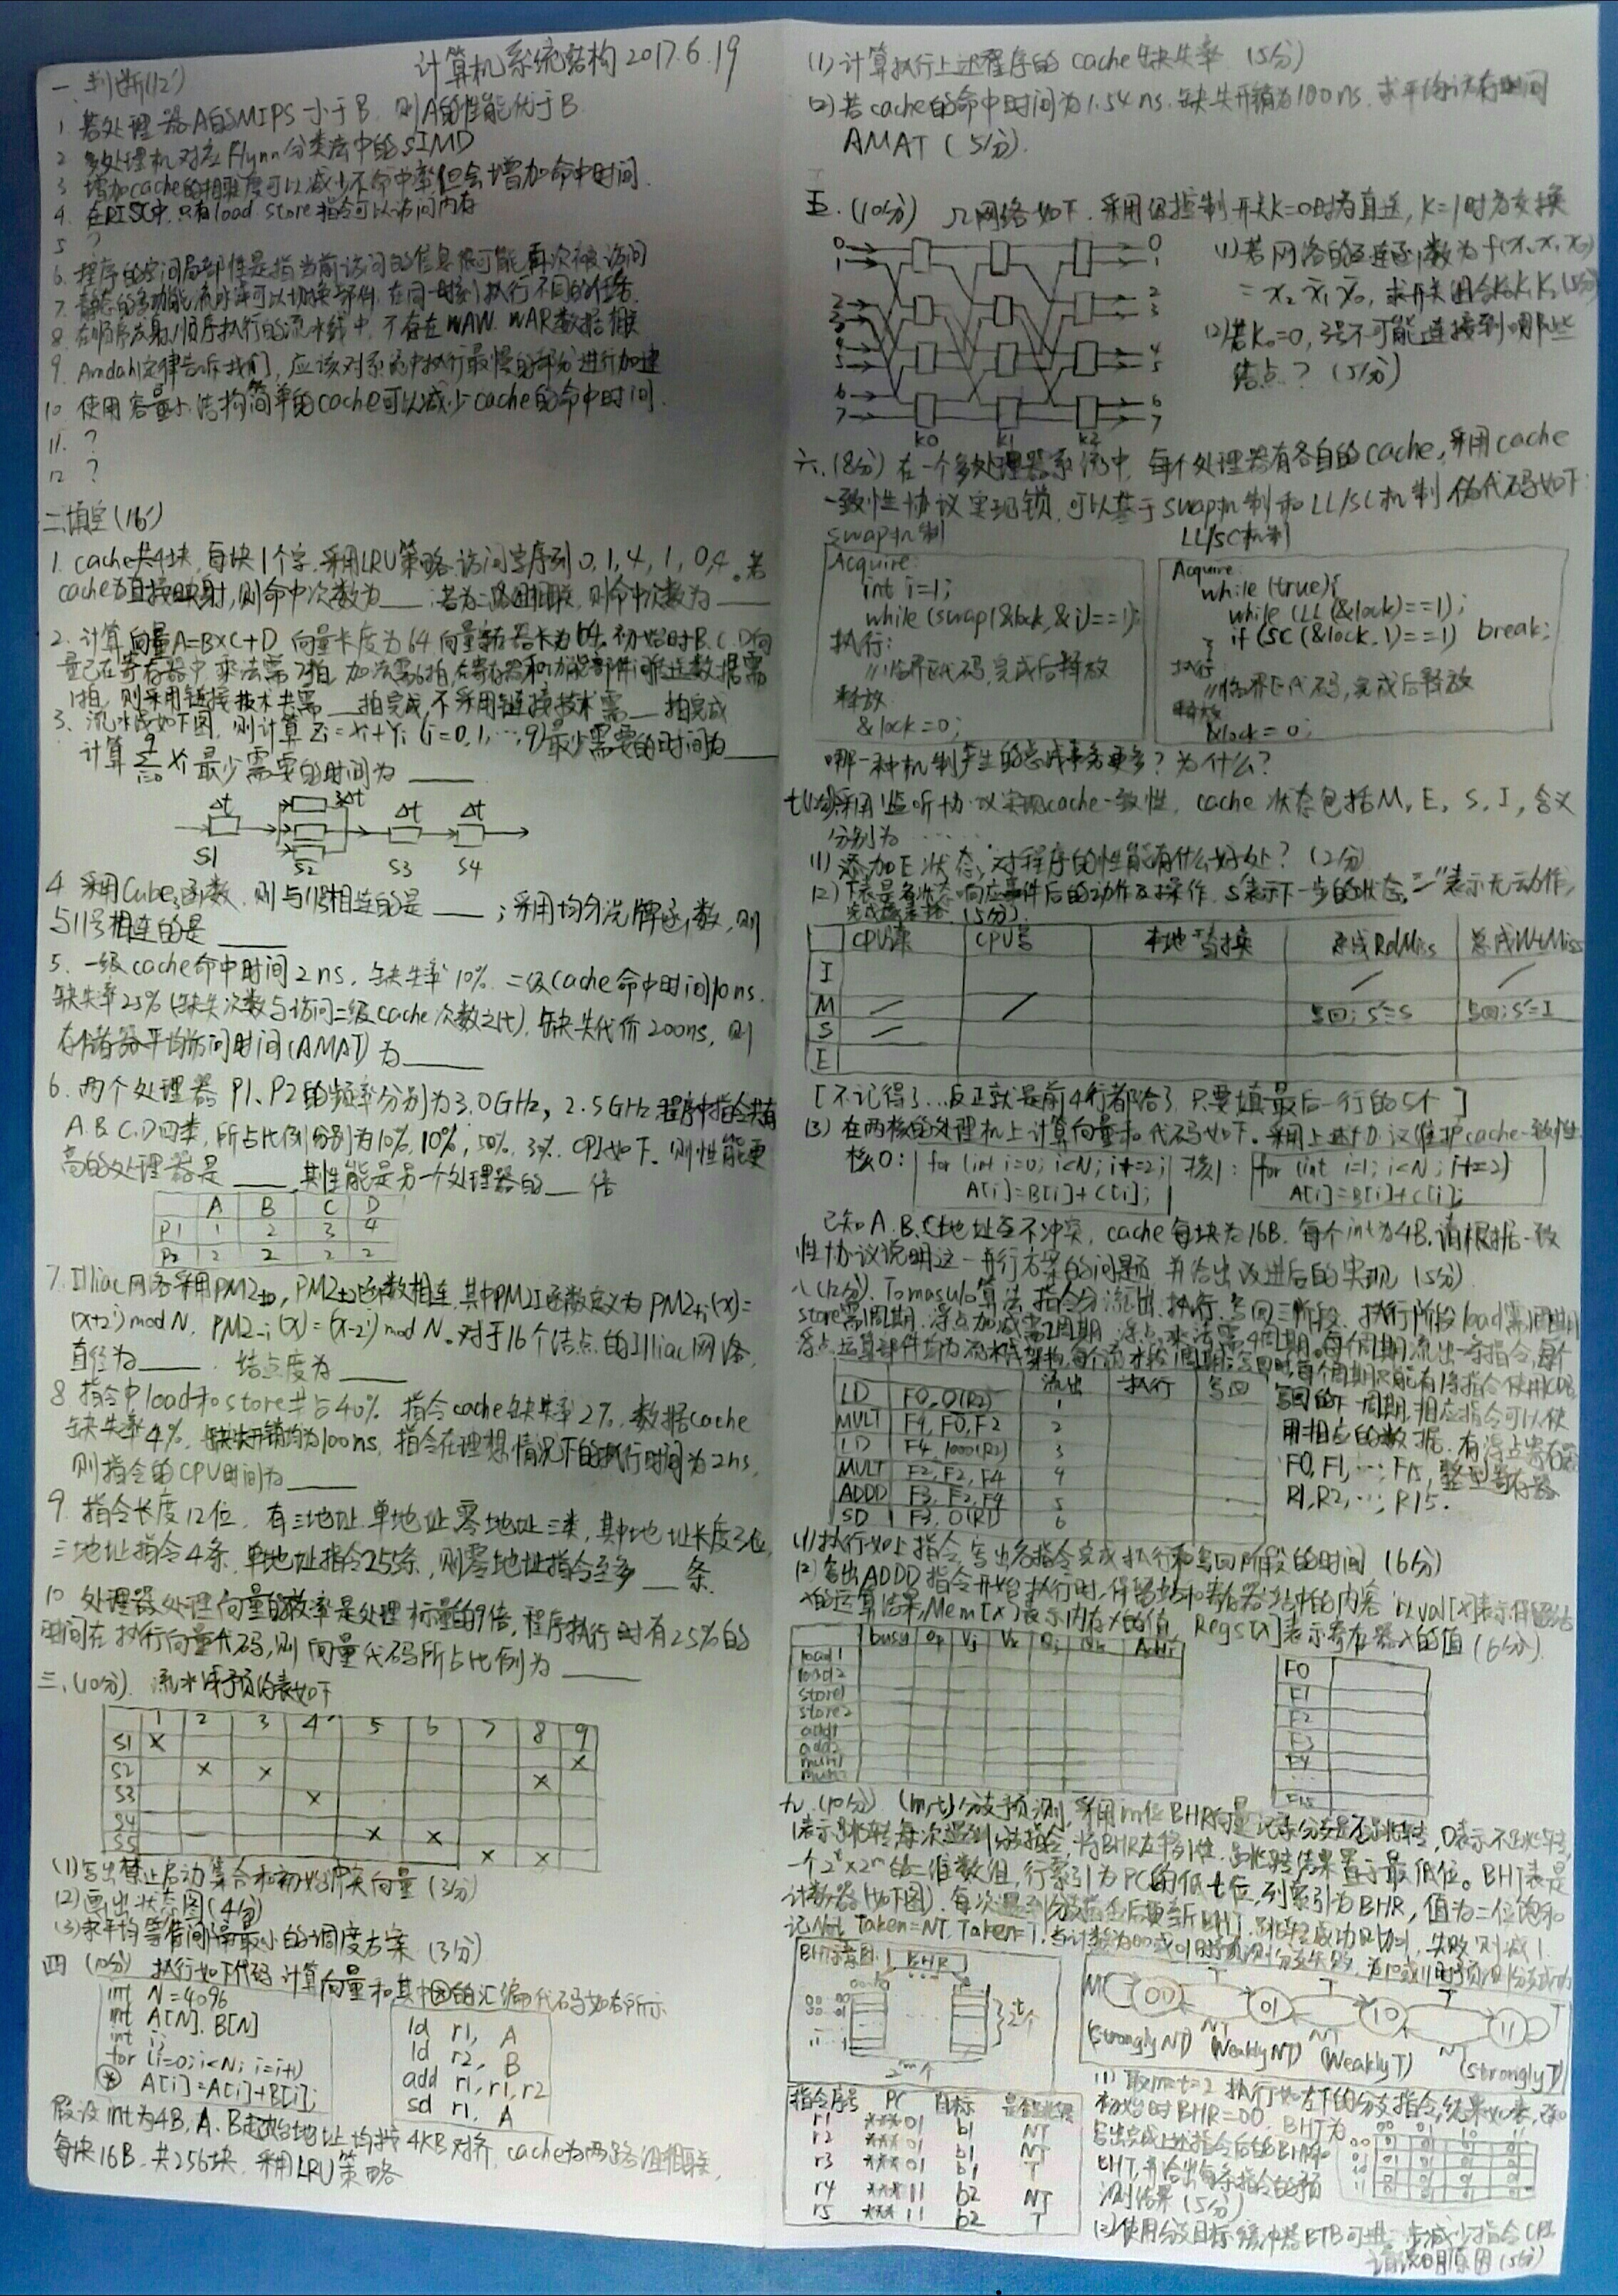 计算机系统结构 2017.6.19
一. 判断(12')
1 若处理器A的MIPS小于B, 则A的性能优于B.
2 多处理机对应Flynn分类法中的SIMD
3 增加cache的相联度可以减少不命中率但会增加命中时间.
4. 在RISC中, 只有load. store指令可以访问内存
5 ?
6. 程序的空间局部性是指当前访问的信息很可能再次被访问
7. 静态的多功能流水线可以切换功能, 在同一时刻执行不同的任务.
8. 在顺序发射/顺序执行的流水线中, 不存在WAW. WAR数据相关
9. Amdahl定律告诉我们, 应该对系统中执行最慢的部分进行加速
10 使用容量小结构简单的cache可以减少cache的命中时间.
11. ?
12 ?
二填空(16')
1. cache共4块, 每块1个字. 采用LRU策略. 访问字序列 0, 1, 4, 1, 0, 4。若
cache为直接映射, 则命中次数为___; 若为二路组相联, 则命中次数为___
2. 计算向量A=B×C+D. 向量长度为64. 向量寄存器长为64. 初始时B. C. D向
量已在寄存器中. 乘法需7拍. 加法需6拍, 在寄存器和功能部件间传送数据需
1拍, 则采用链接技术共需___拍完成, 不采用链接技术需___拍完成
3. 流水线如下图, 则计算 Zi=Xi+Yi (i=0,1,…,9)最少需要的时间为___
计算 9 Σ i=0 Xi 最少需要的时间为___
Δt 3Δt Δt Δt
S1 S2 S3 S4
4 采用Cube3函数. 则与11号相连的是___; 采用均匀洗牌函数, 则
与11号相连的是___
5. 一级cache命中时间2ns, 缺失率10%. 二级cache命中时间10ns.
缺失率25%(缺失次数与访问二级cache次数之比), 缺失代价200ns, 则
存储器平均访问时间(AMAT)为___
6. 两个处理器 P1、P2的频率分别为3.0GHz, 2.5GHz 程序中指令共有
A. B. C. D四类, 所占比例分别为10%, 10%, 50%, 3%. CPI如下. 则性能更
高的处理器是___, 其性能是另一个处理器的___倍
A B C D
P1 1 2 3 4
P2 2 2 2 2
7. Illiac网络采用PM2±0, PM2±2函数相连. 其中PM2I函数定义为 PM2+i(x)=
(x+2^i) mod N, PM2-i(x)=(x-2^i) mod N。对于16个结点的Illiac网络,
直径为___, 结点度为___
8 指令中load和store共占40%. 指令cache缺失率2%, 数据cache
缺失率4%, 缺失开销均为100ns, 指令在理想情况下的执行时间为2ns,
则指令的CPU时间为___
9. 指令长度12位, 有三地址. 单地址. 零地址三类, 其中地址长度3位,
三地址指令4条, 单地址指令255条, 则零地址指令至多___条.
10 处理器处理向量的效率是处理标量的9倍, 程序执行时有25%的
时间在执行向量代码, 则向量代码所占比例为___
三、(10分). 流水线预约表如下
1 2 3 4 5 6 7 8 9
S1 × ×
S2 × × ×
S3 ×
S4 × ×
S5 × ×
(1)写出禁止启动集合和初始冲突向量 (3分)
(2)画出状态图(4分)
(3)求平均等待间隔最小的调度方案 (3分)
四 (10分) 执行如下代码 计算向量和 其中⊛的汇编代码如右所示
int N=4096
int A[N]. B[N]
int i;
for (i=0; i<N; i=i+1)
⊛ A[i]=A[i]+B[i];
ld r1, A
ld r2, B
add r1, r1, r2
sd r1, A
假设int为4B, A. B起始地址均按4KB对齐, cache为两路组相联,
每块16B. 共256块, 采用LRU策略
(1)计算执行上述程序的cache缺失率 (5分)
(2)若cache的命中时间为1.54ns. 缺失开销为100ns. 求平均访存时间
AMAT (5分).
五. (10分) Ω网络如下. 采用级控制. 开关K=0时为直送, K=1时为交换
0 1 2 3 4 5 6 7
0 1 2 3 4 5 6 7
K0 K1 K2
(1)若网络的互连函数为f(x2 x1 x0)
= x2 x̄1 x̄0, 求开关组合K0K1K2(5分)
(2)若K0=0, 3号不可能连接到哪些
结点? (5分)
六. (8分) 在一个多处理器系统中, 每个处理器有各自的cache, 采用cache
一致性协议实现锁, 可以基于swap机制和LL/SC机制 伪代码如下:
swap机制
Acquire:
int i=1;
while (swap(&lock, &i)==1);
执行:
//临界区代码, 完成后释放
释放
&lock=0;
LL/SC机制
Acquire
while (true){
while (LL(&lock)==1);
if (SC(&lock, 1)==1) break;
}
执行
//临界区代码, 完成后释放
释放
&lock=0;
哪一种机制产生的总线事务更多? 为什么?
七(12分)采用监听协议实现cache一致性, cache状态包括M, E, S, I, 含义
分别为……
(1)添加E状态, 对程序的性能有什么好处? (2分)
(2)下表是各状态响应事件后的动作及操作. S'表示下一步的状态, "—"表示无动作,
完成该表格 (5分)
CPU读 CPU写 本地替换 总线RdMiss 总线WtMiss
I / /
M / / 写回; S'=S 写回; S'=I
S /
E
[不记得了…反正就是前4行都给了, 只要填最后一行的5个]
(3)在两核的处理机上计算向量和 代码如下. 采用上述协议维护cache一致性
核0: for (int i=0; i<N; i+=2)
A[i]=B[i]+C[i];
核1: for (int i=1; i<N; i+=2)
A[i]=B[i]+C[i];
已知A. B. C地址互不冲突, cache每块为16B, 每个int为4B, 请根据一致
性协议说明这一并行方案的问题 并给出改进后的实现 (5分)
八(12分). Tomasulo算法 指令分流出、执行、写回三阶段, 执行阶段load需
store需1周期, 浮点加减需2周期 浮点乘法需4周期. 每个周期流出一条指令,
写回的下一周期, 相应指令可以使
用相应的数据. 有浮点寄存器
F0, F1, …, F15, 整型寄存器
R1, R2, …, R15.
流出 执行 写回
LD F0, 0(R2) 1
MULT F4, F0, F2 2
LD F4, 1000(R2) 3
MULT F2, F2, F4 4
ADDD F3, F2, F4 5
SD F3, 0(R1) 6
(1)执行如上指令, 写出各指令完成执行和写回阶段的时间 (6分)
(2)写出ADDD指令开始执行时, 保留站和寄存器结果的内容 val[x]表示保留站
x的运算结果, Mem[x]表示内存x的值, Regs[x]表示寄存器x的值 (6分)
busy Op Vj Vk Qj Qk Addr
load1
load2
store1
store2
add1
add2
mult1
mult2
F0
F1
F2
F3
F4
…
F15
九. (10分) (m,t)分支预测, 采用m位BHR向量记录分支是否跳转, 0表示不跳转,
1表示跳转. 每次遇到分支指令, 将BHR左移1位, 跳转结果置于最低位。BHT表是
一个2^t×2^m的二维数组, 行索引为PC的低t位, 列索引为BHR, 值为二位饱和
计数器(如下图). 每次遇到分支指令后更新BHT, 跳转成功则加1, 失败则减1.
记Not Taken=NT, Taken=T. 当计数为00或01时预测分支失败, 为10或11时预测分支成功
BHT示意图: BHR
2^t个
2^m个
NT 00 T 01 T 10 T 11 T
NT NT NT
(strongly NT) (Weakly NT) (Weakly T) (strongly T)
指令序号 PC 目标 是否跳转
r1 ***01 b1 NT
r2 ***01 b1 NT
r3 ***01 b1 T
r4 ***11 b2 NT
r5 ***11 b2 T
(1) 取m=t=2 执行如左下的分支指令, 结果如表,
初始时BHR=00, BHT为
写出完成上述指令后的BHR和
BHT, 并给出每条指令的预
测结果 (5分)
00 01 10 11
00 01 01 01 01
01 01 01 01 01
10 01 01 01 01
11 01 01 01 01
(2)使用分支目标缓冲器BTB可进一步减少指令CPI,
请说明原因 (5分)